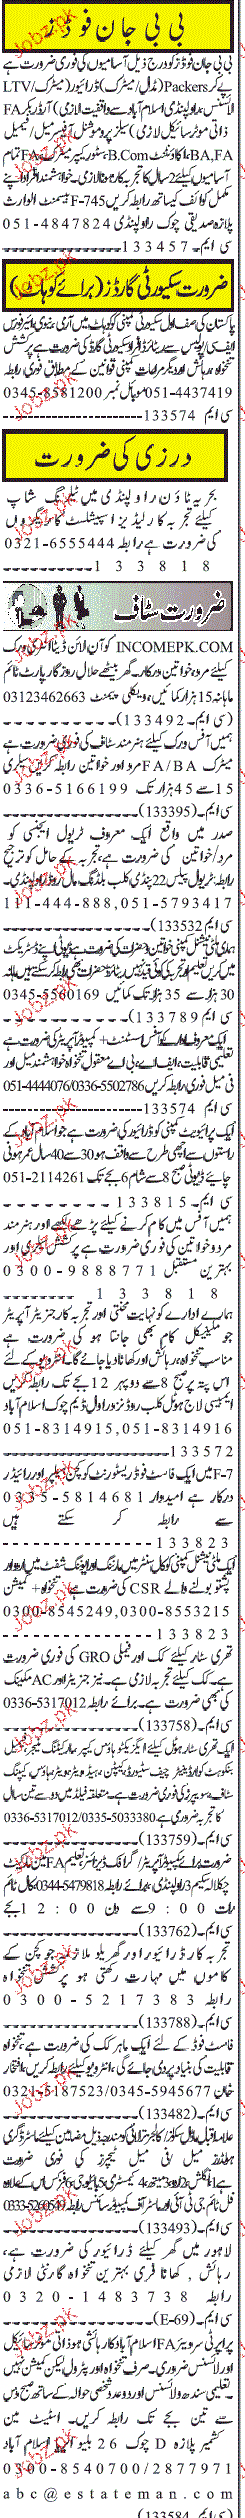 بی بی جان فوڈز
بی بی جان فوڈز کو درج ذیل آسامیوں کی فوری ضرورت ہے
پیکر Packers (مڈل/میٹرک) ڈرائیور (میٹرک/LTV
لائسنس راولپنڈی اسلام آباد سے واقفیت لازمی) آرڈر بکر FA
ذاتی موٹر سائیکل لازمی) سیلز پروموشنل آفیسر میل/فیمیل
BA,FA، اکاؤنٹنٹ B.Com، سٹور کیپر میٹرک/FA تمام
آسامیوں کیلئے 2 سال کا تجربہ کار ہونا لازمی۔ خواہشمند افراد اپنے
مکمل کوائف کیساتھ رابطہ کریں F-745 بیسمنٹ الوارث
پلازہ صدیقی چوک راولپنڈی 051-4847824
سی ایم۔133457
ضرورت سکیورٹی گارڈز (برائے کوہاٹ)
پاکستان کی صف اول سکیورٹی کمپنی کو کوہاٹ میں آرمی، نیوی، ائیر فورس
ایف سی، پولیس سے ریٹائرڈ افراد سکیورٹی گارڈ کی ضرورت ہے پرکشش
تنخواہ، رہائش اور دیگر مراعات کمپنی قوانین کے مطابق فوری رابطہ
051-4437419 موبائل نمبر 0345-8581200
سی ایم 133574
درزی کی ضرورت
بحریہ ٹاؤن راولپنڈی میں ٹیلرنگ شاپ
کیلئے تجربہ کار لیڈیز اسپیشلسٹ کاریگروں
کی ضرورت ہے رابطہ 0321-6555444
133818
ضرورت سٹاف
INCOMEPK.COM کو آن لائن ڈیٹا انٹری ورک
کیلئے مرد، خواتین ورکار۔ گھر بیٹھے حلال روزگار پارٹ ٹائم
ماہانہ 15 ہزار کمائیں، ویکلی پیمنٹ 03123462663
(سی ایم۔133492)
ہمیں آفس ورک کیلئے ہنرمند سٹاف کی فوری ضرورت ہے
میٹرک FA/BA مرد اور خواتین رابطہ کریں سیلری
15 سے 45 ہزار تک 0336-5166199
سی ایم۔(133395)
صدر میں واقع ایک معروف ٹریول ایجنسی کو
مرد/خواتین کی ضرورت ہے، تجربہ کے حامل کو ترجیح
رابطہ: ٹریول پلس 22 پنڈی کلب بلڈنگ مال روڈ راولپنڈی۔
111-444-888,051-5793417
سی ایم۔(133532)
30 ہزار سے 35 ہزار تک کمائیں 0345-5560169
سی ایم۔(133789)
ایک معروف ادارے کو آفس اسسٹنٹ + کمپیوٹر آپریٹر کی ضرورت ہے
تعلیمی قابلیت ایف اے، بی اے معقول تنخواہ خواہشمند میل اور
فی میل فوری رابطہ کریں 051-4444076/0336-5502786
سی ایم 133574
ایک پرائیویٹ کمپنی کو ڈرائیور کی ضرورت ہے جو اسلام آباد کے
راستوں سے اچھی طرح سے واقف ہو 30 سے 40 سال عمر ہونی
چاہئے ڈیوٹی صبح 8 سے شام 6 بجے تک 051-2114261
سی ایم۔133815
ہمیں آفس میں کام کرنے کیلئے پڑھے لکھے اور ہنر مند
مرد و خواتین کی فوری ضرورت ہے پرکشش سیلری اور
بہترین مستقبل 0300-9888771
133818
ہمارے ادارے کو نہایت محنتی اور تجربہ کار جنریٹر آپریٹر
جو مکینیکل کام بھی جانتا ہو کی ضرورت ہے
مناسب تنخواہ، رہائش اور کھانا دیا جائے گا۔ انٹرویو کے لئے
اس پتہ پر صبح 8 سے دوپہر 12 بجے تک رابطہ کریں
ایمبیسی لاج ہوٹل کلب روڈ نزد راول ڈیم چوک اسلام آباد
051-8314915,051-8314916
133572
F-7 میں ایک فاسٹ فوڈ ریسٹورنٹ کو کچن ہیلپر اور رائیڈر
درکار ہے امیدوار 0335-5814681
سے رابطہ کر سکتے ہیں
133823
ایک ملٹی نیشنل کمپنی کو کال سنٹر میں مارننگ اور ایوننگ شفٹ میں اردو اور
پشتو بولنے والے CSR کی ضرورت ہے۔ تنخواہ + کمیشن
0300-8545249,0300-8553215
133823
تھری سٹار کیلئے کک اور فیملی GRO کی فوری ضرورت
ہے۔ کک کیلئے تجربہ لازمی ہے۔ نیز جنریٹر اور AC مکینک
کی بھی ضرورت ہے۔ برائے رابطہ 0336-5317012
سی ایم۔(133758)
ایک تھری سٹار ہوٹل کیلئے ایگزیکٹو ہاؤس کیپر، مارکیٹنگ منیجر، ہوٹل
کا تجربہ ضروری ہے 0336-5317012/0335-5033380
سی ایم۔(133759)
چکلالہ سکیم 3 راولپنڈی، برائے رابطہ 0344-5479818 کال ٹائم
رات 9:00 سے دن 12:00 بجے
سی ایم۔(133762)
تجربہ کار ڈرائیور اور گھریلو ملازمہ جو کچن کے
کاموں میں مہارت رکھتی ہو پرکشش تنخواہ
رابطہ 0300-5217383
سی ایم۔(133788)
فاسٹ فوڈ کے لئے ایک ماہر کک کی ضرورت ہے، تنخواہ
قابلیت کی بنیاد پر دی جائے گی، انٹرویو کیلئے رابطہ کریں، افتخار
خان 0321-5187523/0345-5945677
سی ایم۔(133482)
سی ایم۔(133493)
لاہور میں گھر کیلئے ڈرائیور کی ضرورت ہے،
رہائش، کھانا فری بہترین تنخواہ گارنٹی لازمی
رابطہ 0320-1483738
سی ایم۔(E-69)
پراپرٹی سرویئر FA اسلام آباد کا رہائشی ہو ذاتی موٹر سائیکل
اور لائسنس ضروری۔ صرف تنخواہ اور پٹرول لیکن کمیشن نہیں
۔ تعلیمی سند و لائسنس اور دو عدد شخصی حوالہ کے ساتھ صبح دس
سے تین بجے تک رابطہ کریں۔ اسٹیٹ مین
کشمیر پلازہ D چوک 26 بلیو ایریا اسلام آباد
0300-8540700/2877971
abc@estateman.com
سی ایم۔(133584)